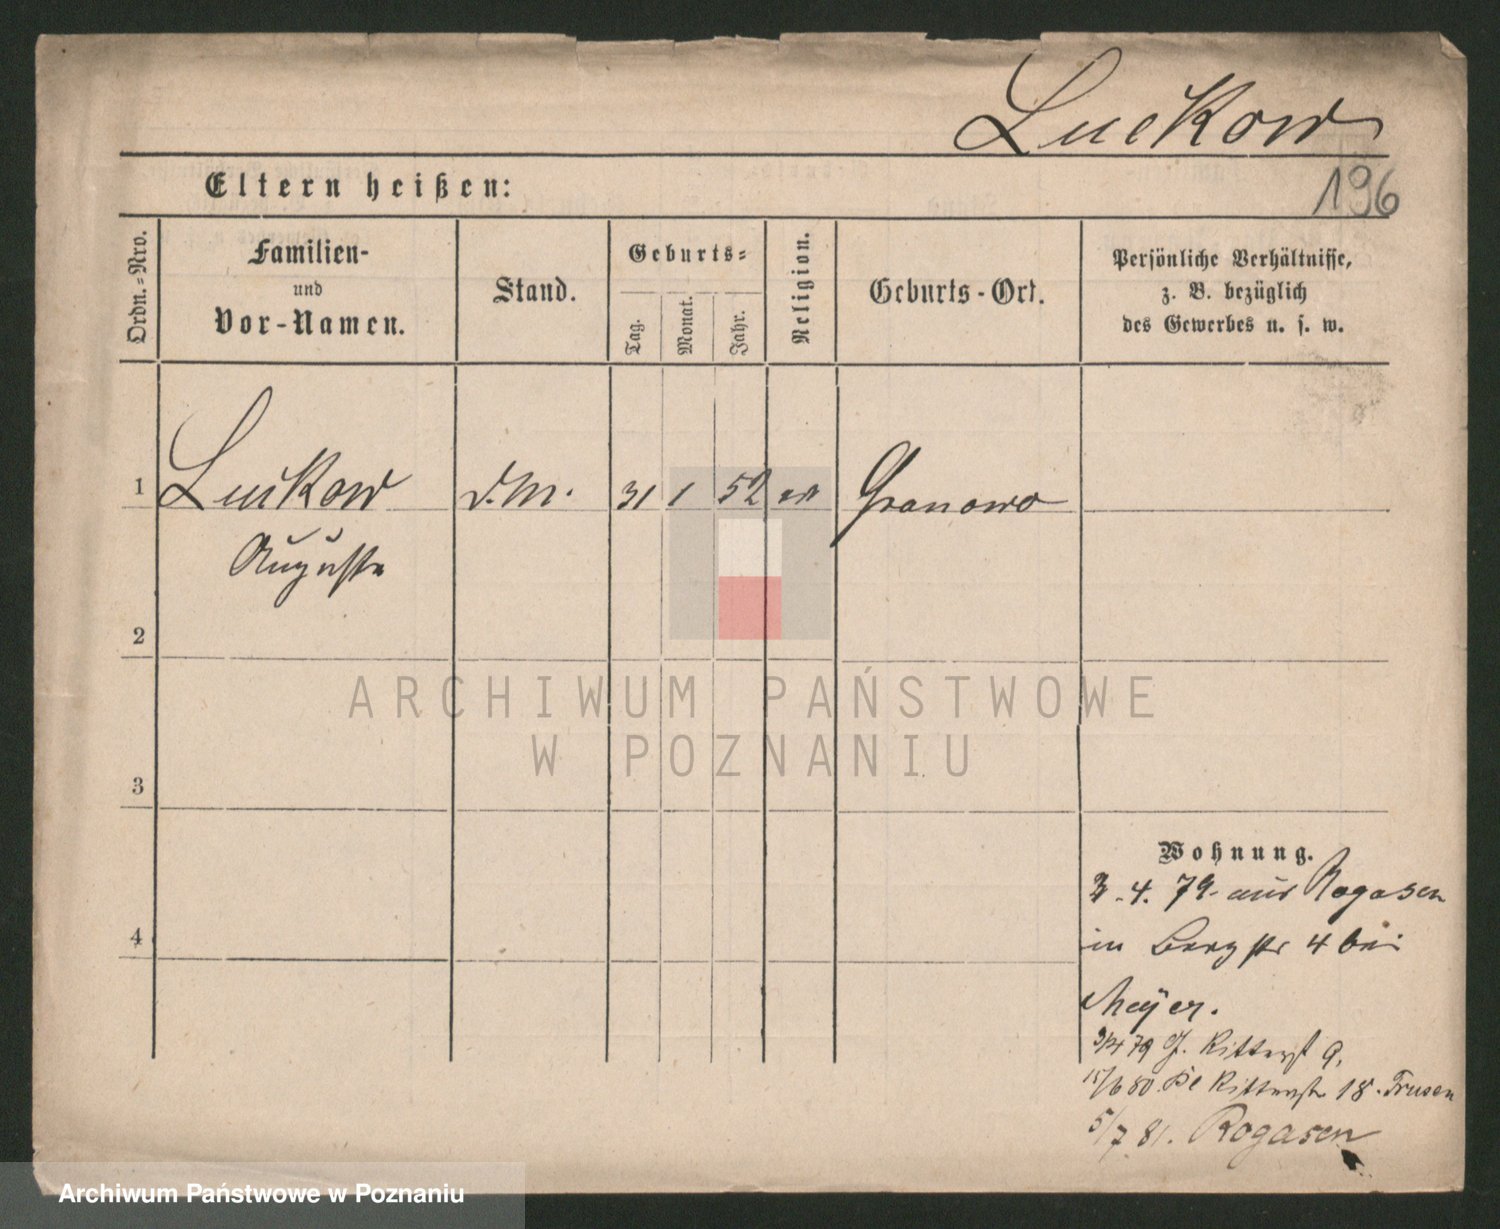 Luckow
Eltern heißen:
196
Ordn.-Nro.
Familien-
und
Vor-Namen.
Stand.
Geburts-
Tag.
Monat.
Jahr.
Religion.
Geburts-Ort.
Persönliche Verhältnisse,
z. B. bezüglich
des Gewerbes u. s. w.
1 Luckow d.M. 31 1 52 Granowo
Auguste
2
ARCHIWUM PAŃSTWOWE
W POZNANIU
3
Wohnung.
4. 79. aus Rogasen
4
in Bergstr 4 bei
Meÿer.
79 Ritterst 9.
15/6 80. Ritterstr 18.
5/7 81. Rogasen
Archiwum Państwowe w Poznaniu